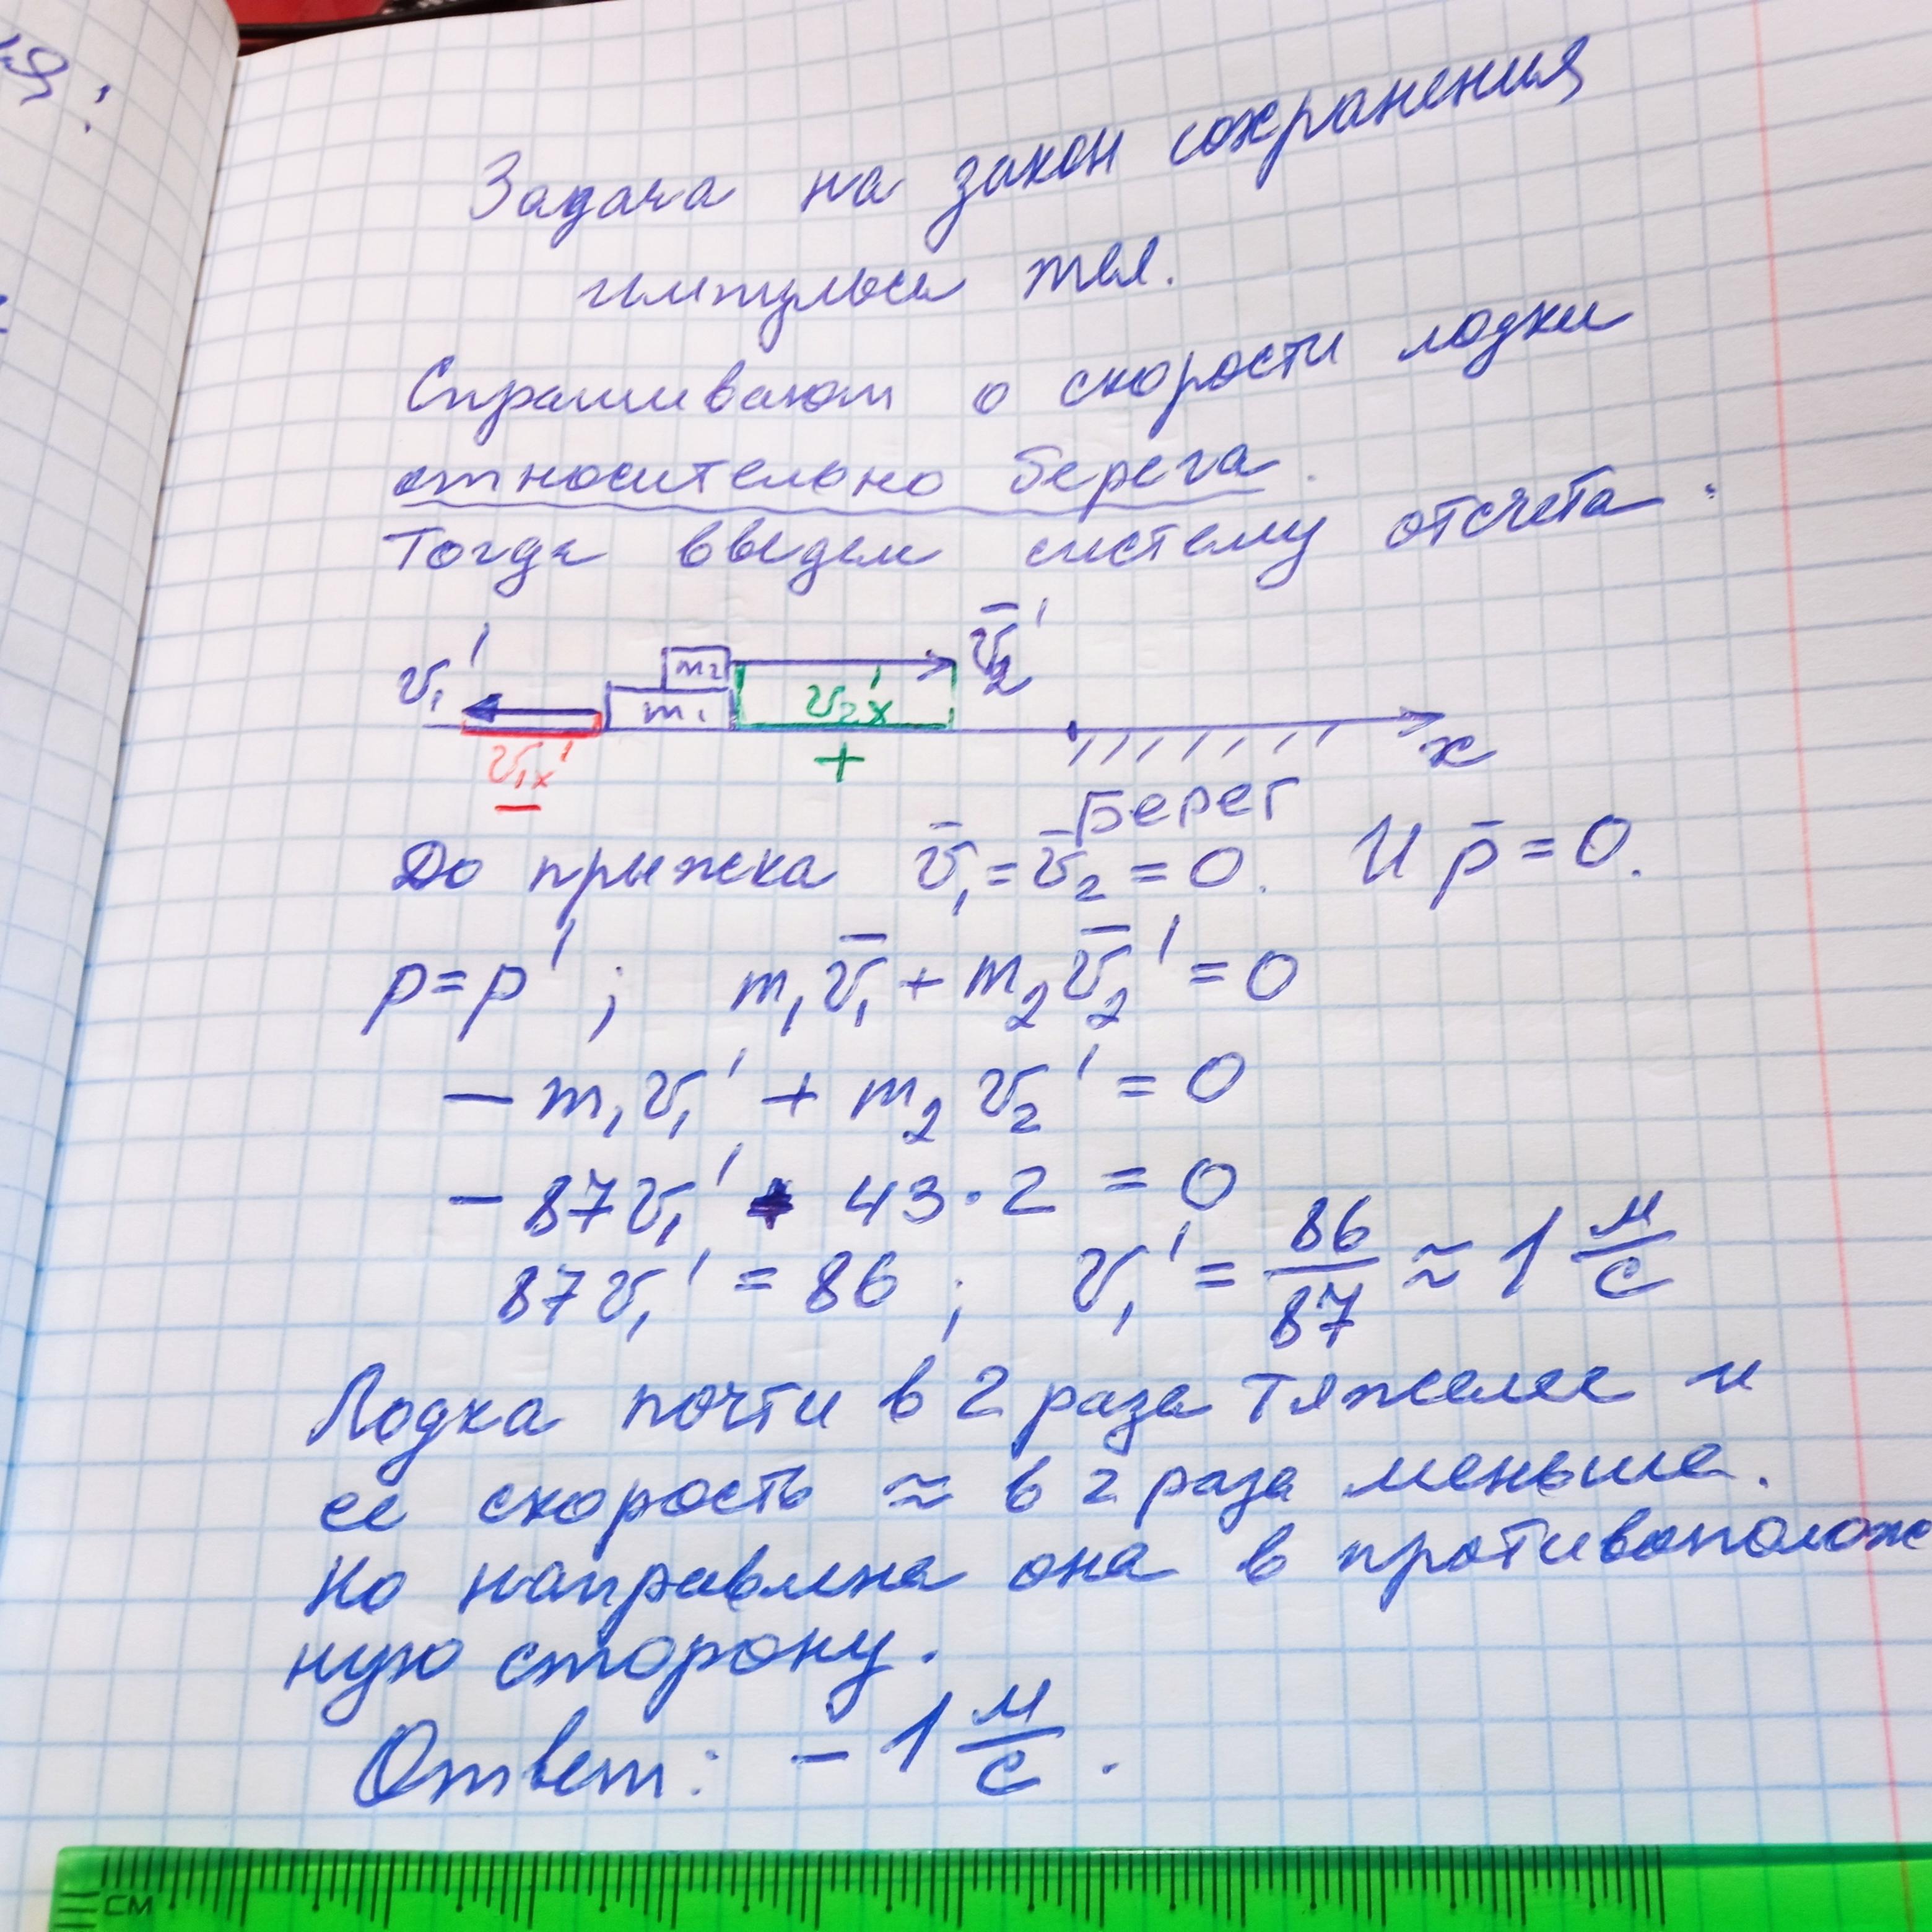 ия:
Задача на закон сохранения
импульса тел.
Спрашивают о скорости лодки
относительно берега.
Тогда введем систему отсчета:
v₁' m₂ m₁ v₂ₓ' v̄₂' x
v₁ₓ' + Берег
−
До прыжка v̄₁ = v̄₂ = 0. И p̄ = 0.
p = p' ; m₁v̄₁ + m₂v̄₂' = 0
− m₁v₁' + m₂v₂' = 0
− 87v₁' + 43·2 = 0
87v₁' = 86 ; v₁' = 86/87 ≈ 1 м/с
Лодка почти в 2 раза тяжелее и
ее скорость ≈ в 2 раза меньше.
Но направлена она в противополож
ную сторону.
Ответ: − 1 м/с.
СМ